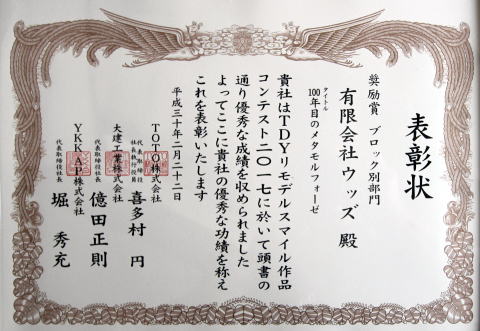 表彰状
奨励賞 ブロック別部門
有限会社ウッズ 殿
タイトル
100年目のメタモルフォーゼ
貴社はTDYリモデルスマイル作品
コンテスト二〇一七に於いて頭書の
通り優秀な成績を収められました
よってここに貴社の優秀な功績を称え
これを表彰いたします
平成三十年二月二十二日
TOTO株式会社
代表取締役
社長執行役員
喜多村 円
大建工業株式会社
代表取締役社長
億田正則
YKK AP株式会社
代表取締役社長
堀 秀充